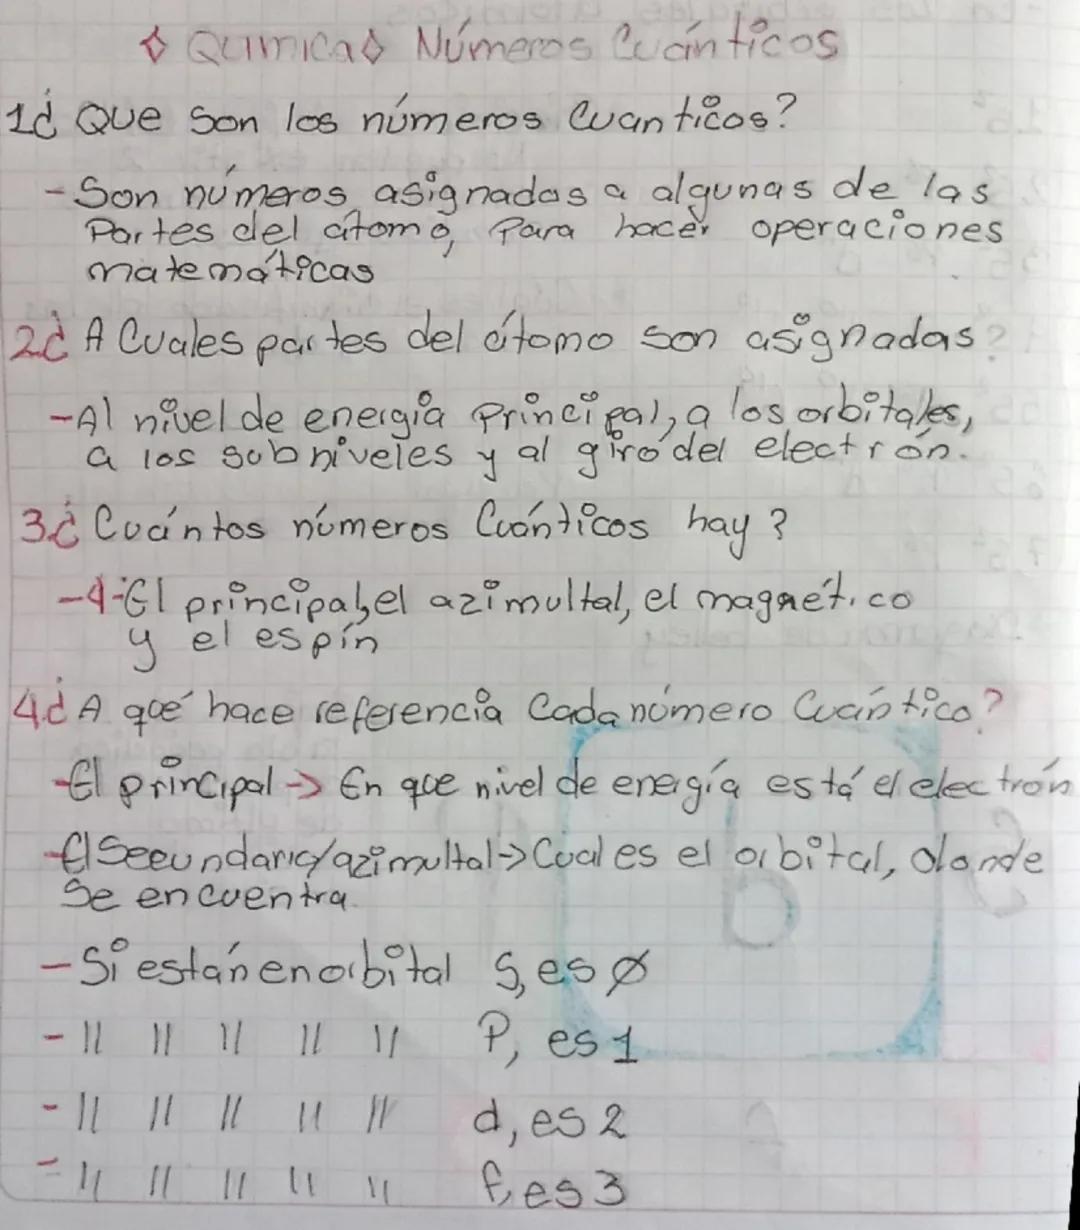 Quimica Números Cuánticos
1¿ Que son los números Cuanticos?
- Son números asignadas a algunas de las
Partes del átomo, Para hacer operaciones
matemáticas
2¿ A Cuales partes del átomo son asignadas?
- Al nivel de energia Principal, a los orbitales,
a los subniveles y al giro del electrón.
3.¿ Cuántos números Cuánticos hay?
- 4 - El principal, el azimultal, el magnético
y el espín
4.¿ A qué hace referencia Cada número Cuántico?
- El principal -> En que nivel de energía está el electrón
- El Secundario/azimultal -> Cual es el orbital, donde
Se encuentra.
- Si están en orbital S, es Ø
- " " " " " P, es 1
- " " " " " d, es 2
- " " " " " f, es 3